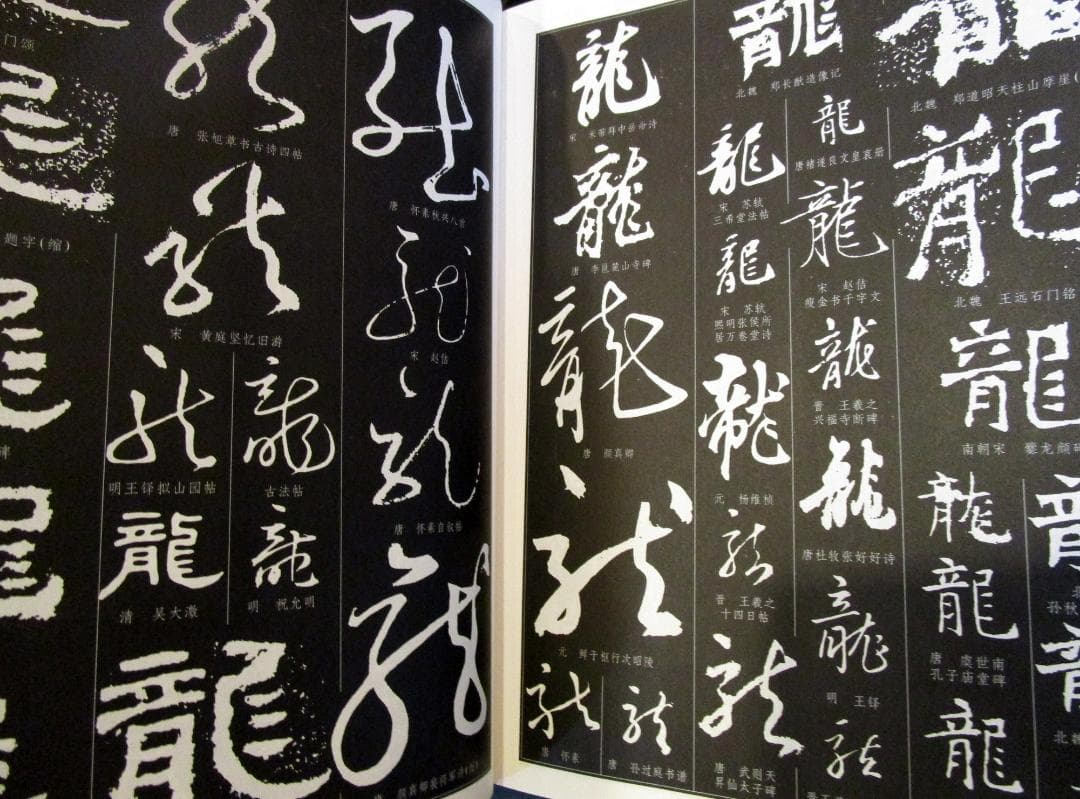 门颂
龍
唐 张旭草书古诗四帖
龍
题字(缩)
龍
宋 黄庭坚忆旧游
龍
明王铎拟山园帖
龍
古法帖
龍
清 吴大澂
龍
明 祝允明
龍
碑
龍
龍
唐 怀素秋兴八首
龍
宋 赵佶
龍
唐 怀素自叙帖
龍
唐 颜真卿裴将军诗
龍
宋 米芾拜中岳命诗
龍
唐 李邕麓山寺碑
龍
唐 颜真卿
龍
元 鲜于枢行次昭陵
龍
唐 怀素
龍
唐 孙过庭书谱
龍
北魏 郑长猷造像记
龍
宋 苏轼
三希堂法帖
龍
宋 苏轼
熙明张侯所
居万卷堂诗
龍
元 杨维桢
龍
晋 王羲之
十四日帖
龍
唐 武则天
昇仙太子碑
龍
唐褚遂良文皇哀册
龍
宋 赵佶
瘦金书千字文
龍
晋 王羲之
兴福寺断碑
龍
唐杜牧张好好诗
龍
明 王铎
龍
北魏 郑道昭天柱山摩崖
龍
北魏 王远石门铭
龍
南朝宋 爨龙颜碑
龍
龍
唐 虞世南
孔子庙堂碑
龍
孙秋
北魏